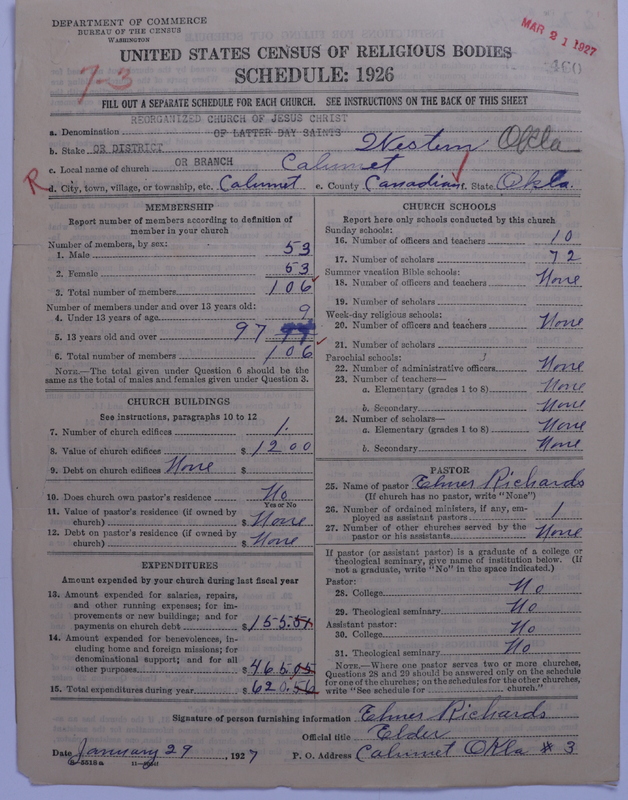 DEPARTMENT OF COMMERCE
BUREAU OF THE CENSUS
WASHINGTON
MAR 21 1927
UNITED STATES CENSUS OF RELIGIOUS BODIES
460
7-3
SCHEDULE: 1926
FILL OUT A SEPARATE SCHEDULE FOR EACH CHURCH. SEE INSTRUCTIONS ON THE BACK OF THIS SHEET
REORGANIZED CHURCH OF JESUS CHRIST
a. Denomination OF LATTER DAY SAINTS
b. State OR DISTRICT Western Okla
c. Local name of church OR BRANCH Calumet
R d. City, town, village, or township, etc. Calumet e. County Canadian f. State Okla.
MEMBERSHIP
Report number of members according to definition of
member in your church
Number of members, by sex:
1. Male 53
2. Female 53
3. Total number of members 106
Number of members under and over 13 years old:
4. Under 13 years of age 9
5. 13 years old and over 97
6. Total number of members 106
NOTE.—The total given under Question 6 should be
same as the total of males and females given under Question 3.
CHURCH BUILDINGS
See instructions, paragraphs 10 to 12
7. Number of church edifices 1.
8. Value of church edifices $ 1200
9. Debt on church edifices None $
10. Does church own pastor's residence No
Yes or No
11. Value of pastor's residence (if owned by
church) $ None
12. Debt on pastor's residence (if owned by
church) $ None
EXPENDITURES
Amount expended by your church during last fiscal year
13. Amount expended for salaries, repairs,
and other running expenses; for im-
provements or new buildings; and for
payments on church debt $ 155.51
14. Amount expended for benevolences, in-
cluding home and foreign missions; for
denominational support; and for all
other purposes $ 465.05
15. Total expenditures during year $ 620.56
CHURCH SCHOOLS
Report here only schools conducted by this church
Sunday schools:
16. Number of officers and teachers 10
17. Number of scholars 72
Summer vacation Bible schools:
18. Number of officers and teachers None
19. Number of scholars
Week-day religious schools:
20. Number of officers and teachers None
21. Number of scholars
Parochial schools:
22. Number of administrative officers None
23. Number of teachers—
a. Elementary (grades 1 to 8) None
b. Secondary None
24. Number of scholars—
a. Elementary (grades 1 to 8) None
b. Secondary None
PASTOR
25. Name of pastor Elmer Richards
(If church has no pastor, write "None")
26. Number of ordained ministers, if any, em-
ployed as assistant pastors 1
27. Number of other churches served by the
pastor or his assistants None
If pastor (or assistant pastor) is a graduate of a college or
theological seminary, give name of institution below. (If
not a graduate, write "No" in the space indicated.)
Pastor:
28. College No
29. Theological seminary No
Assistant pastor:
30. College No
31. Theological seminary No
NOTE.—Where one pastor serves two or more churches,
Questions 28 and 29 should be answered only on the schedule
for one of the churches; on the schedules for the other churches,
write "See schedule for church."
Signature of person furnishing information Elmer Richards
Official title Elder
Date January 29, 1927 P. O. Address Calumet Okla # 3